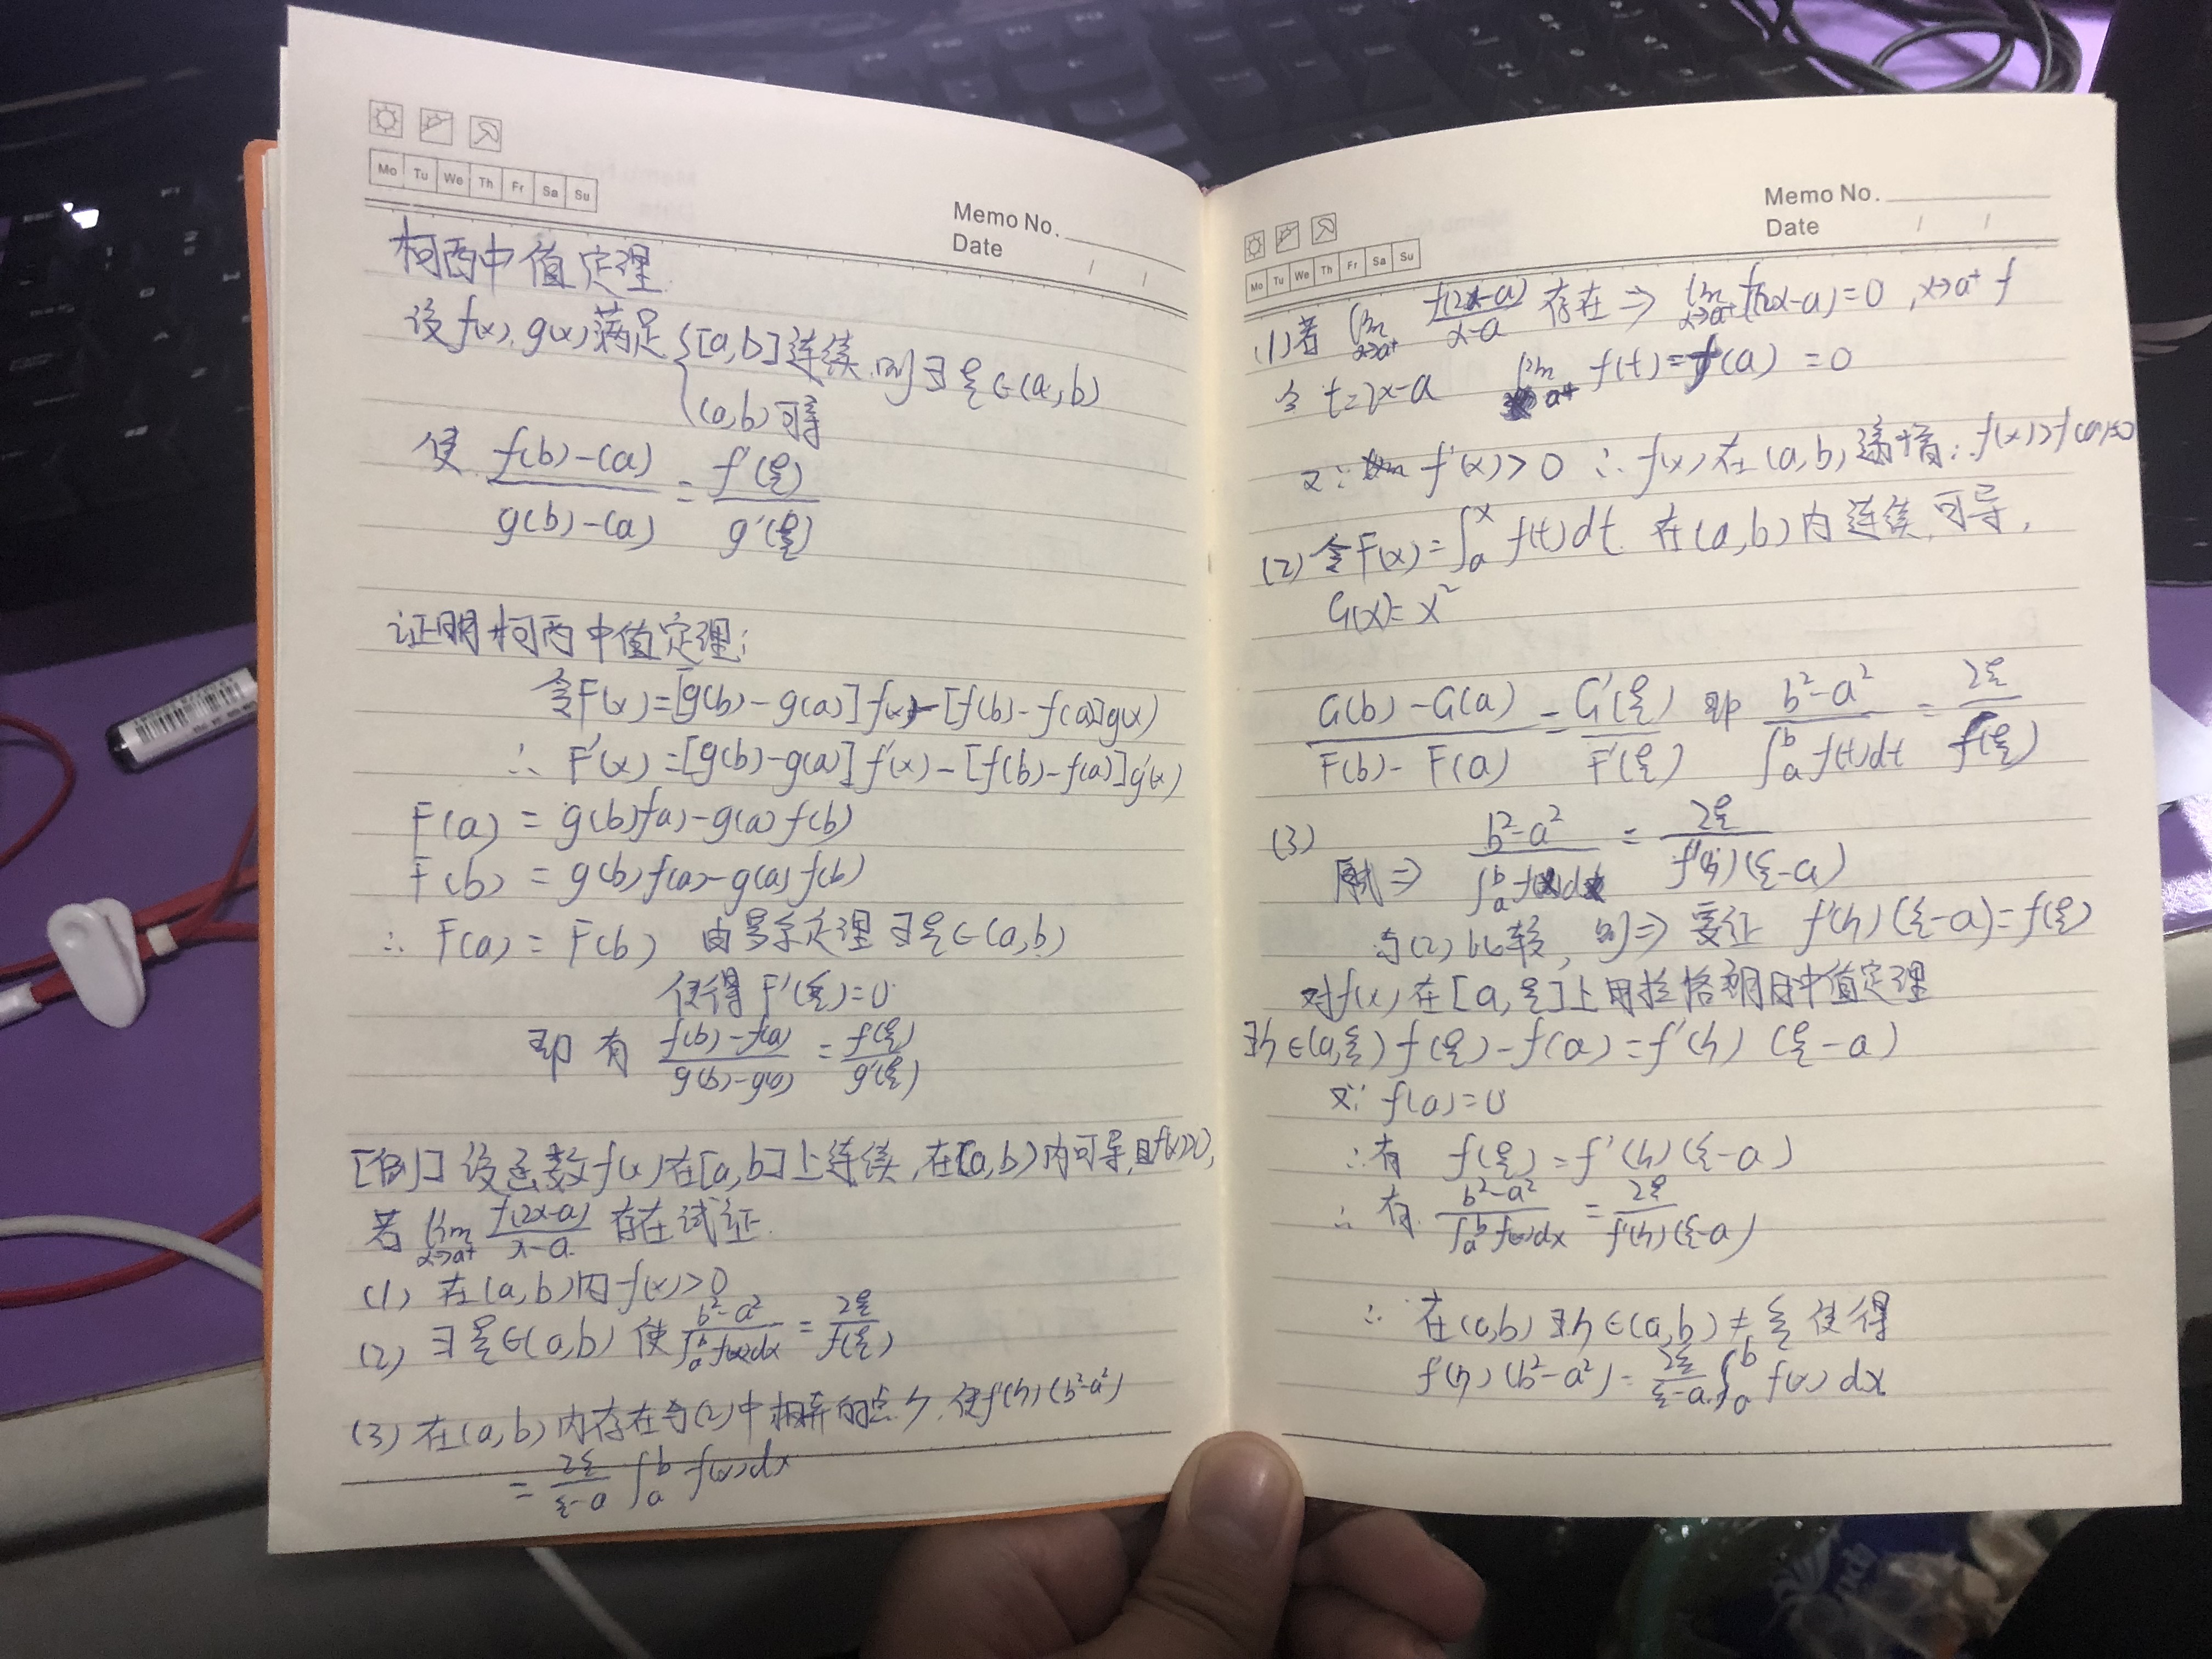 Mo Tu We Th Fr Sa Su
Memo No.
Date / /
柯西中值定理
设f(x),g(x)满足{[a,b]连续,则∃ξ∈(a,b)
(a,b)可导
使 (f(b)-(a))/(g(b)-(a)) = f'(ξ)/g'(ξ)
证明柯西中值定理:
令F(x)=[g(b)-g(a)]f(x)-[f(b)-f(a)]g(x)
∴ F'(x)=[g(b)-g(a)]f'(x)-[f(b)-f(a)]g'(x)
F(a) = g(b)f(a)-g(a)f(b)
F(b) = g(b)f(a)-g(a)f(b)
∴ F(a)=F(b) 由罗尔定理∃ξ∈(a,b)
使得F'(ξ)=0
即有 (f(b)-f(a))/(g(b)-g(a)) = f(ξ)/g'(ξ)
[例] 设函数f(x)在[a,b]上连续,在(a,b)内可导,且f'(x)>0,
若 lim x→a⁺ f(2x-a)/(x-a) 存在试证
(1) 在(a,b)内f(x)>0
(2) ∃ξ∈(a,b) 使 (b²-a²)/∫ₐᵇf(x)dx = 2ξ/f(ξ)
(3) 在(a,b)内存在与(2)中相异的点η,使f'(η)(b²-a²)
= 2ξ/(ξ-a) ∫ₐᵇ f(x)dx
Memo No.
Date / /
Mo Tu We Th Fr Sa Su
(1)若 lim x→a⁺ f(2x-a)/(x-a) 存在⇒ lim x→a⁺ f(2x-a)=0 ,x→a⁺ f
令 t=2x-a lim a⁺ f(t)=f(a) =0
又∵ f'(x)>0 ∴f(x)在(a,b)递增∴f(x)>f(a)=0
(2)令F(x)=∫ₐˣ f(t)dt 在(a,b)内连续,可导,
G(x)=x²
(G(b)-G(a))/(F(b)-F(a)) = G'(ξ)/F'(ξ) 即 (b²-a²)/∫ₐᵇf(t)dt = 2ξ/f(ξ)
(3)
原式⇒ (b²-a²)/∫ₐᵇf(x)dx = 2ξ/(f'(η)(ξ-a))
与(2)比较,则⇒要证 f'(η)(ξ-a)=f(ξ)
对f(x)在[a,ξ]上用拉格朗日中值定理
∃η∈(a,ξ) f(ξ)-f(a)=f'(η)(ξ-a)
又∵ f(a)=0
∴有 f(ξ)=f'(η)(ξ-a)
∴有 (b²-a²)/∫ₐᵇf(x)dx = 2ξ/(f'(η)(ξ-a))
∴ 在(a,b)∃η∈(a,b)≠ξ使得
f'(η)(b²-a²)= 2ξ/(ξ-a) ∫ₐᵇ f(x)dx